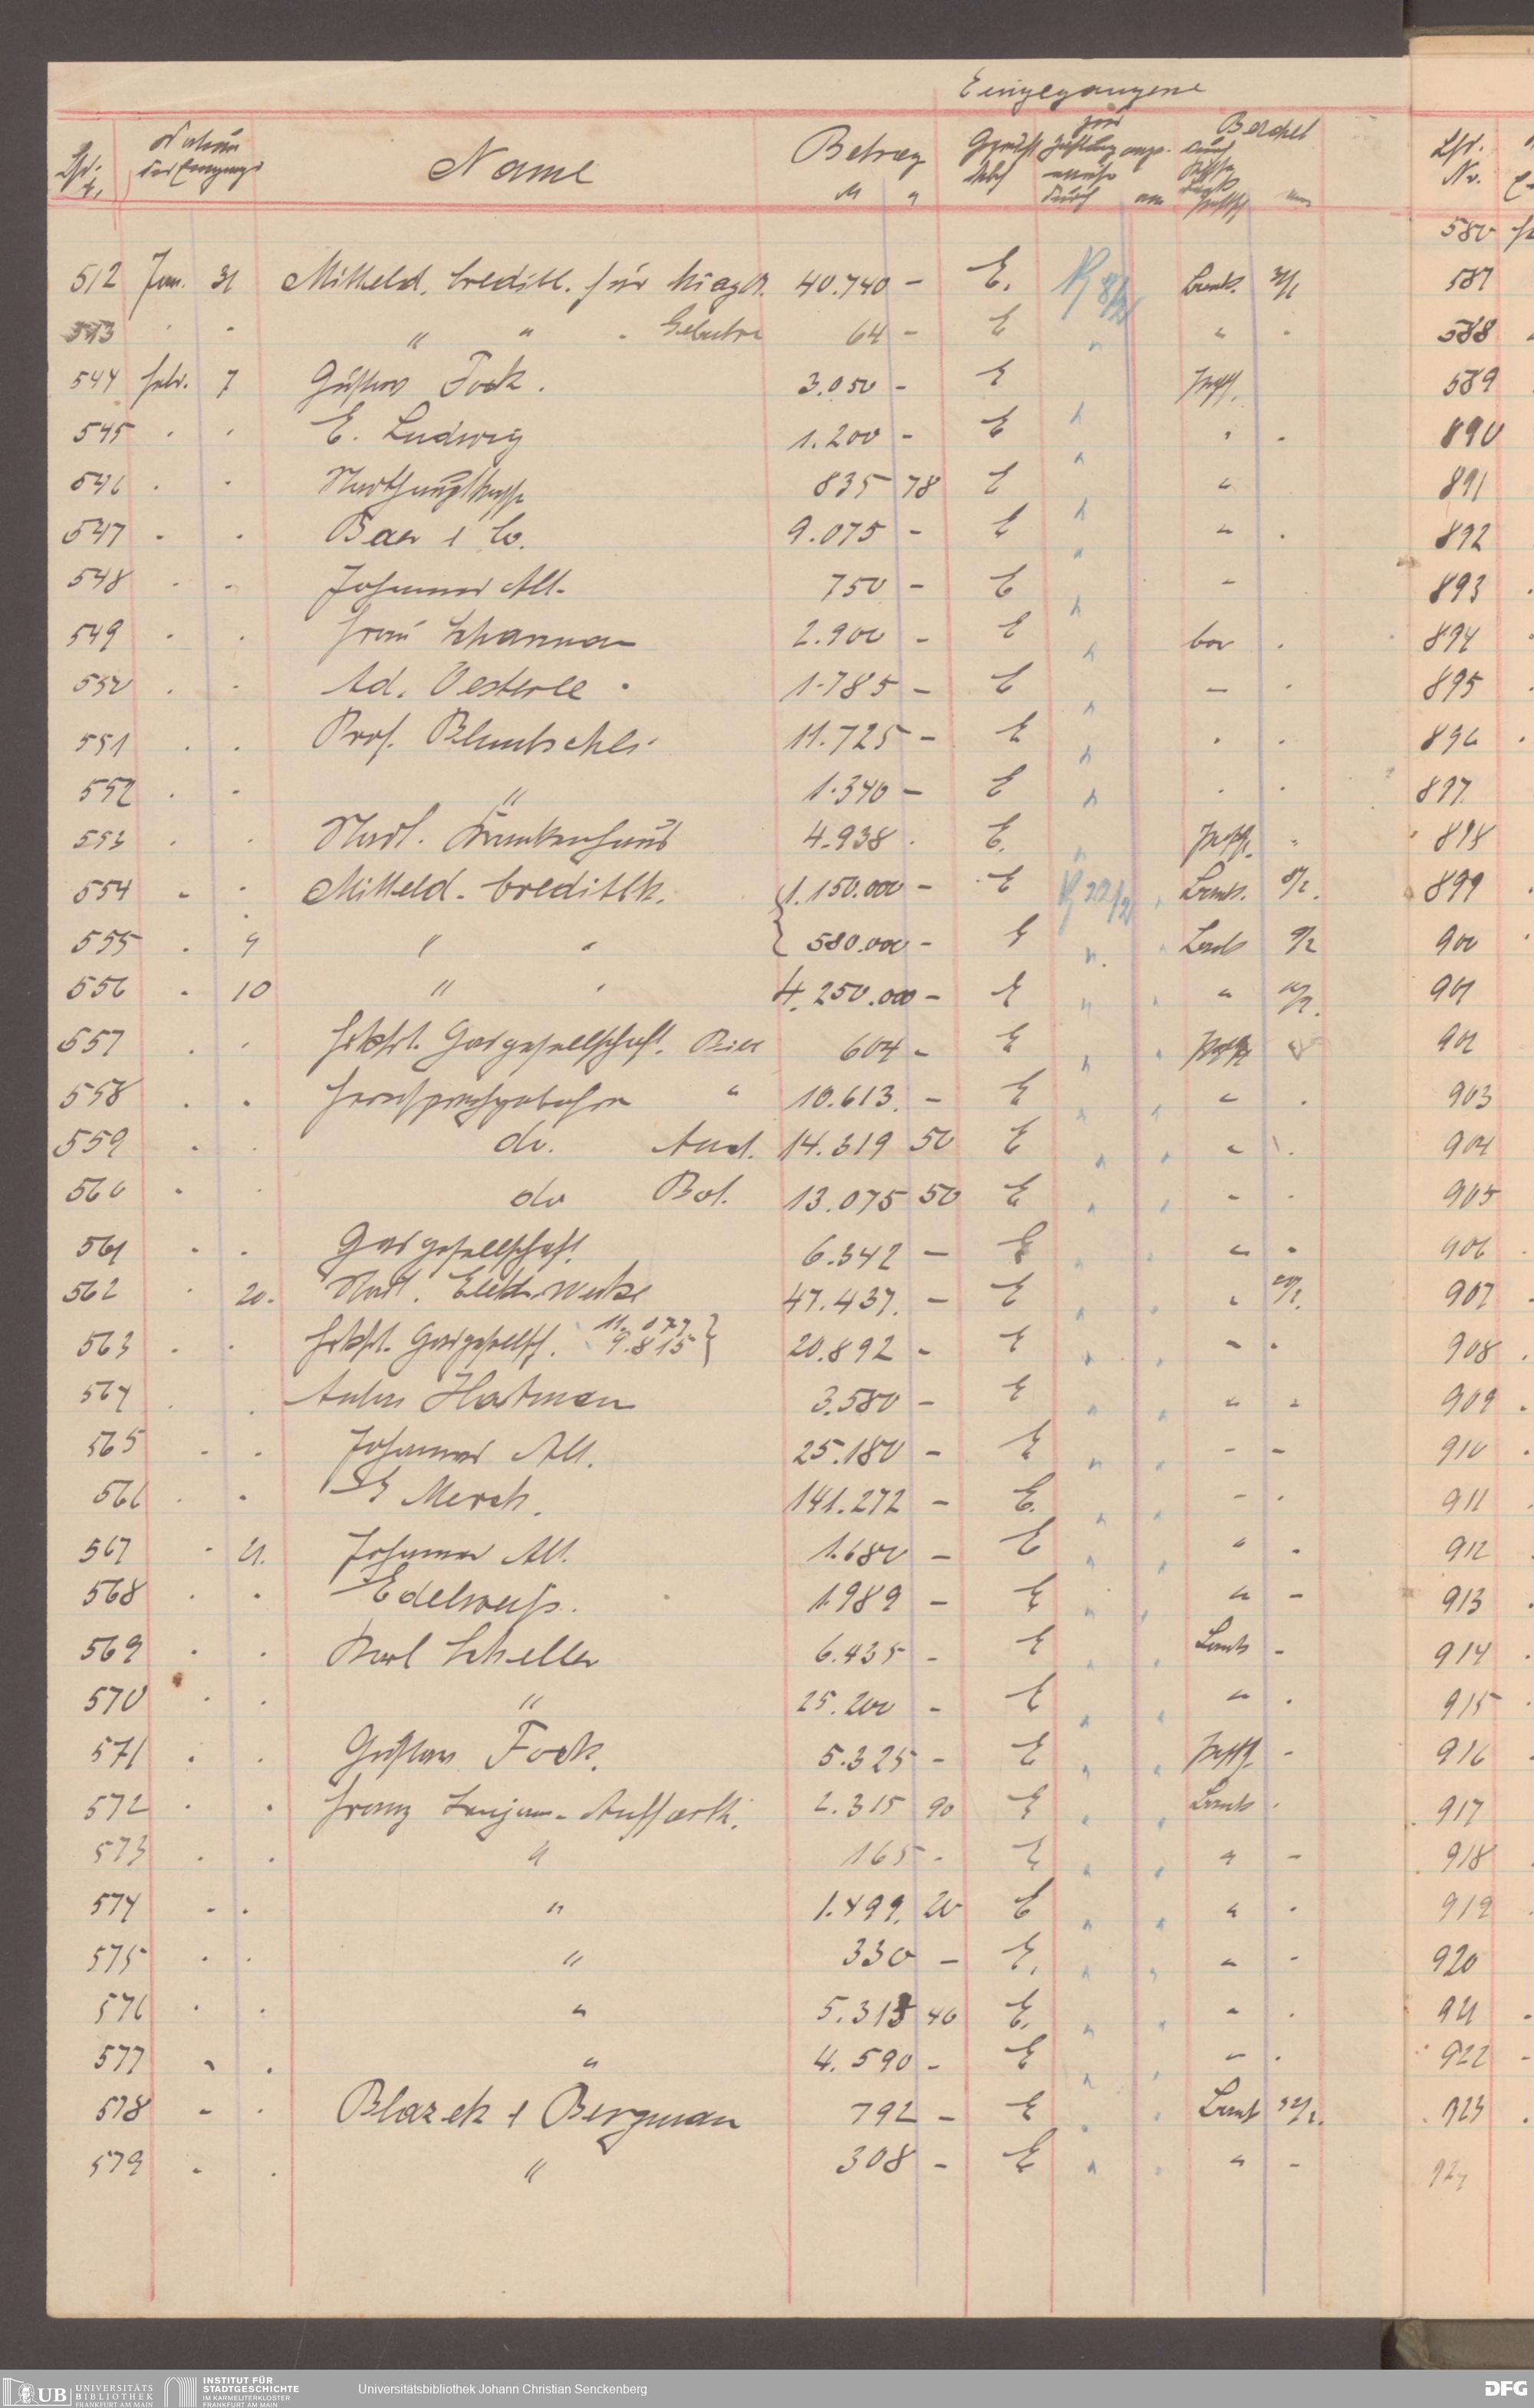 Eingegangene
Lfd. Nr. Datum des Eingangs Name Betrag M Geprüft zur Zahlung angew. durch am Bezahlt durch Bank am
512 Jan. 31 Mitteld. Creditb. für 40.740 - E. Bank. 31/1
513 " " " " " Gebühren 64 - E " "
544 Febr. 7 Gustav Fock. 3.050 - E Postsch.
545 " " E. Ludwig 1.200 - E " "
546 " " Stadthauptkasse 835 78 E "
547 " " Baer & Co. 9.075 - E " "
548 " " Johannes Alt. 750 - E "
549 " " Frau Schamma 2.900 - E bar "
550 " " Ad. Oesterle 1.785 - E " "
551 " " Prof. Bluntschli 11.725 - E " "
552 " " " 1.340 - E " "
553 " " Städt. Krankenhaus 4.938 . E. Postsch. "
554 " " Mitteld. Creditbk. 1.150.000 - E 22/2 Bank. 8/2.
555 " 9 " " 580.000 - E Bank 9/2
556 " 10 " " 4.250.000 - E " 10/2.
557 " " Frkfrt. Gasgesellschaft. 604 - E Postsch
558 " " Fernsprechgebühren " 10.613. - E " "
559 " " do. 14.319 50 E "
560 " " do Bot. 13.075 50 E " "
561 " " Gasgesellschaft 6.342 - E " "
562 " 20. Städt. Elektr. Werke 47.437. - E " 20/2.
563 " " Frkfrt. Gasgesellsch. 11.077 9.815 } 20.892 - E " "
564 " " Anton Hartman 3.580 - E " "
565 " " Johannes Alt. 25.180 - E " "
566 " " E Merck. 141.272 - E. " "
567 " 21. Johannes Alt. 1.680 - E " "
568 " " Edelweiß. 1.989 - E " -
569 " " Karl Scheller 6.435 - E Bank -
570 " " " 25.200 - E " "
571 " " Gustav Fock. 5.325 - E Postsch. -
572 " " Franz Benjamin Auffarth. 2.315 90 E Bank "
573 " " " 165 - E " -
574 " " " 1.499. 20 E " "
575 " " " 330 - E. " "
576 " " " 5.313 40 E. " "
577 " " " 4.590 - E " "
578 " " Blazek & Bergman 792 - E Bank 22/2.
579 " " " 308 - E " -
Lfd. Nr.
580
587
588
589
890
891
892
893
894
895
896
897
898
899
900
901
902
903
904
905
906
907
908
909
910
911
912
913
914
915
916
917
918
919
920
921
922
923
924
UB UNIVERSITÄTS BIBLIOTHEK FRANKFURT AM MAIN
INSTITUT FÜR STADTGESCHICHTE IM KARMELITERKLOSTER FRANKFURT AM MAIN
Universitätsbibliothek Johann Christian Senckenberg
DFG